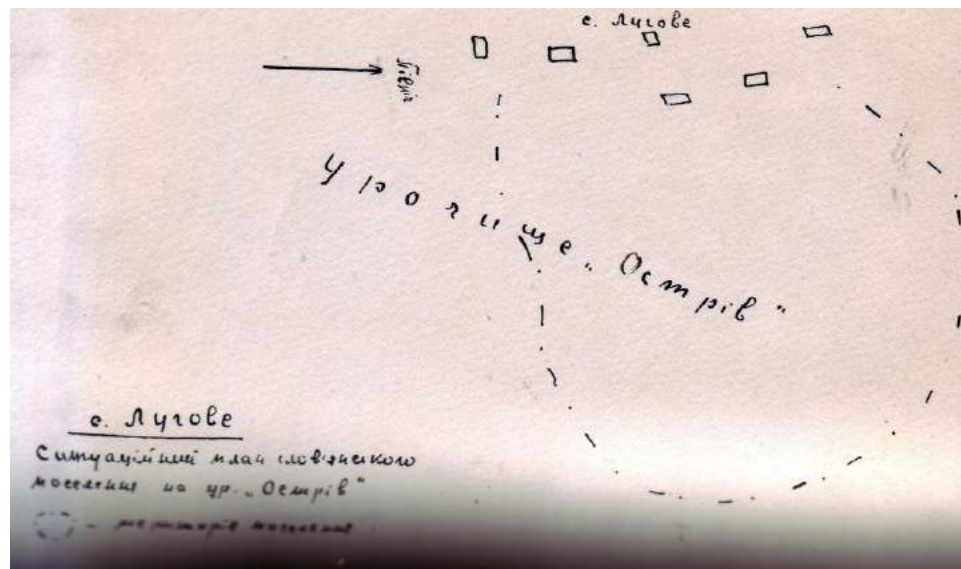 с. Лугове
Північ
Урочище „Острів"
с. Лугове
Ситуаційний план слов'янського
поселення на ур. „Острів"
- територія поселення